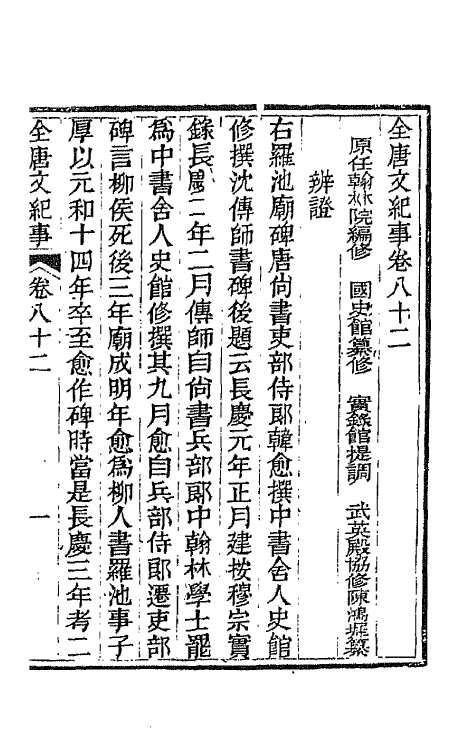 全唐文紀事卷八十二
原任翰林院編修　國史館纂修　實錄館提調　武英殿協修陳鴻墀纂
辨證
右羅池廟碑唐尙書吏部侍郞韓愈撰中書舍人史館
修撰沈傳師書碑後題云長慶元年正月建按穆宗實
錄長慶二年二月傳師自尙書兵部郞中翰林學士罷
爲中書舍人史館修撰其九月愈自兵部侍郞遷吏部
碑言柳侯死後三年廟成明年愈爲柳人書羅池事子
厚以元和十四年卒至愈作碑時當是長慶三年考二
全唐文紀事　卷八十二　一